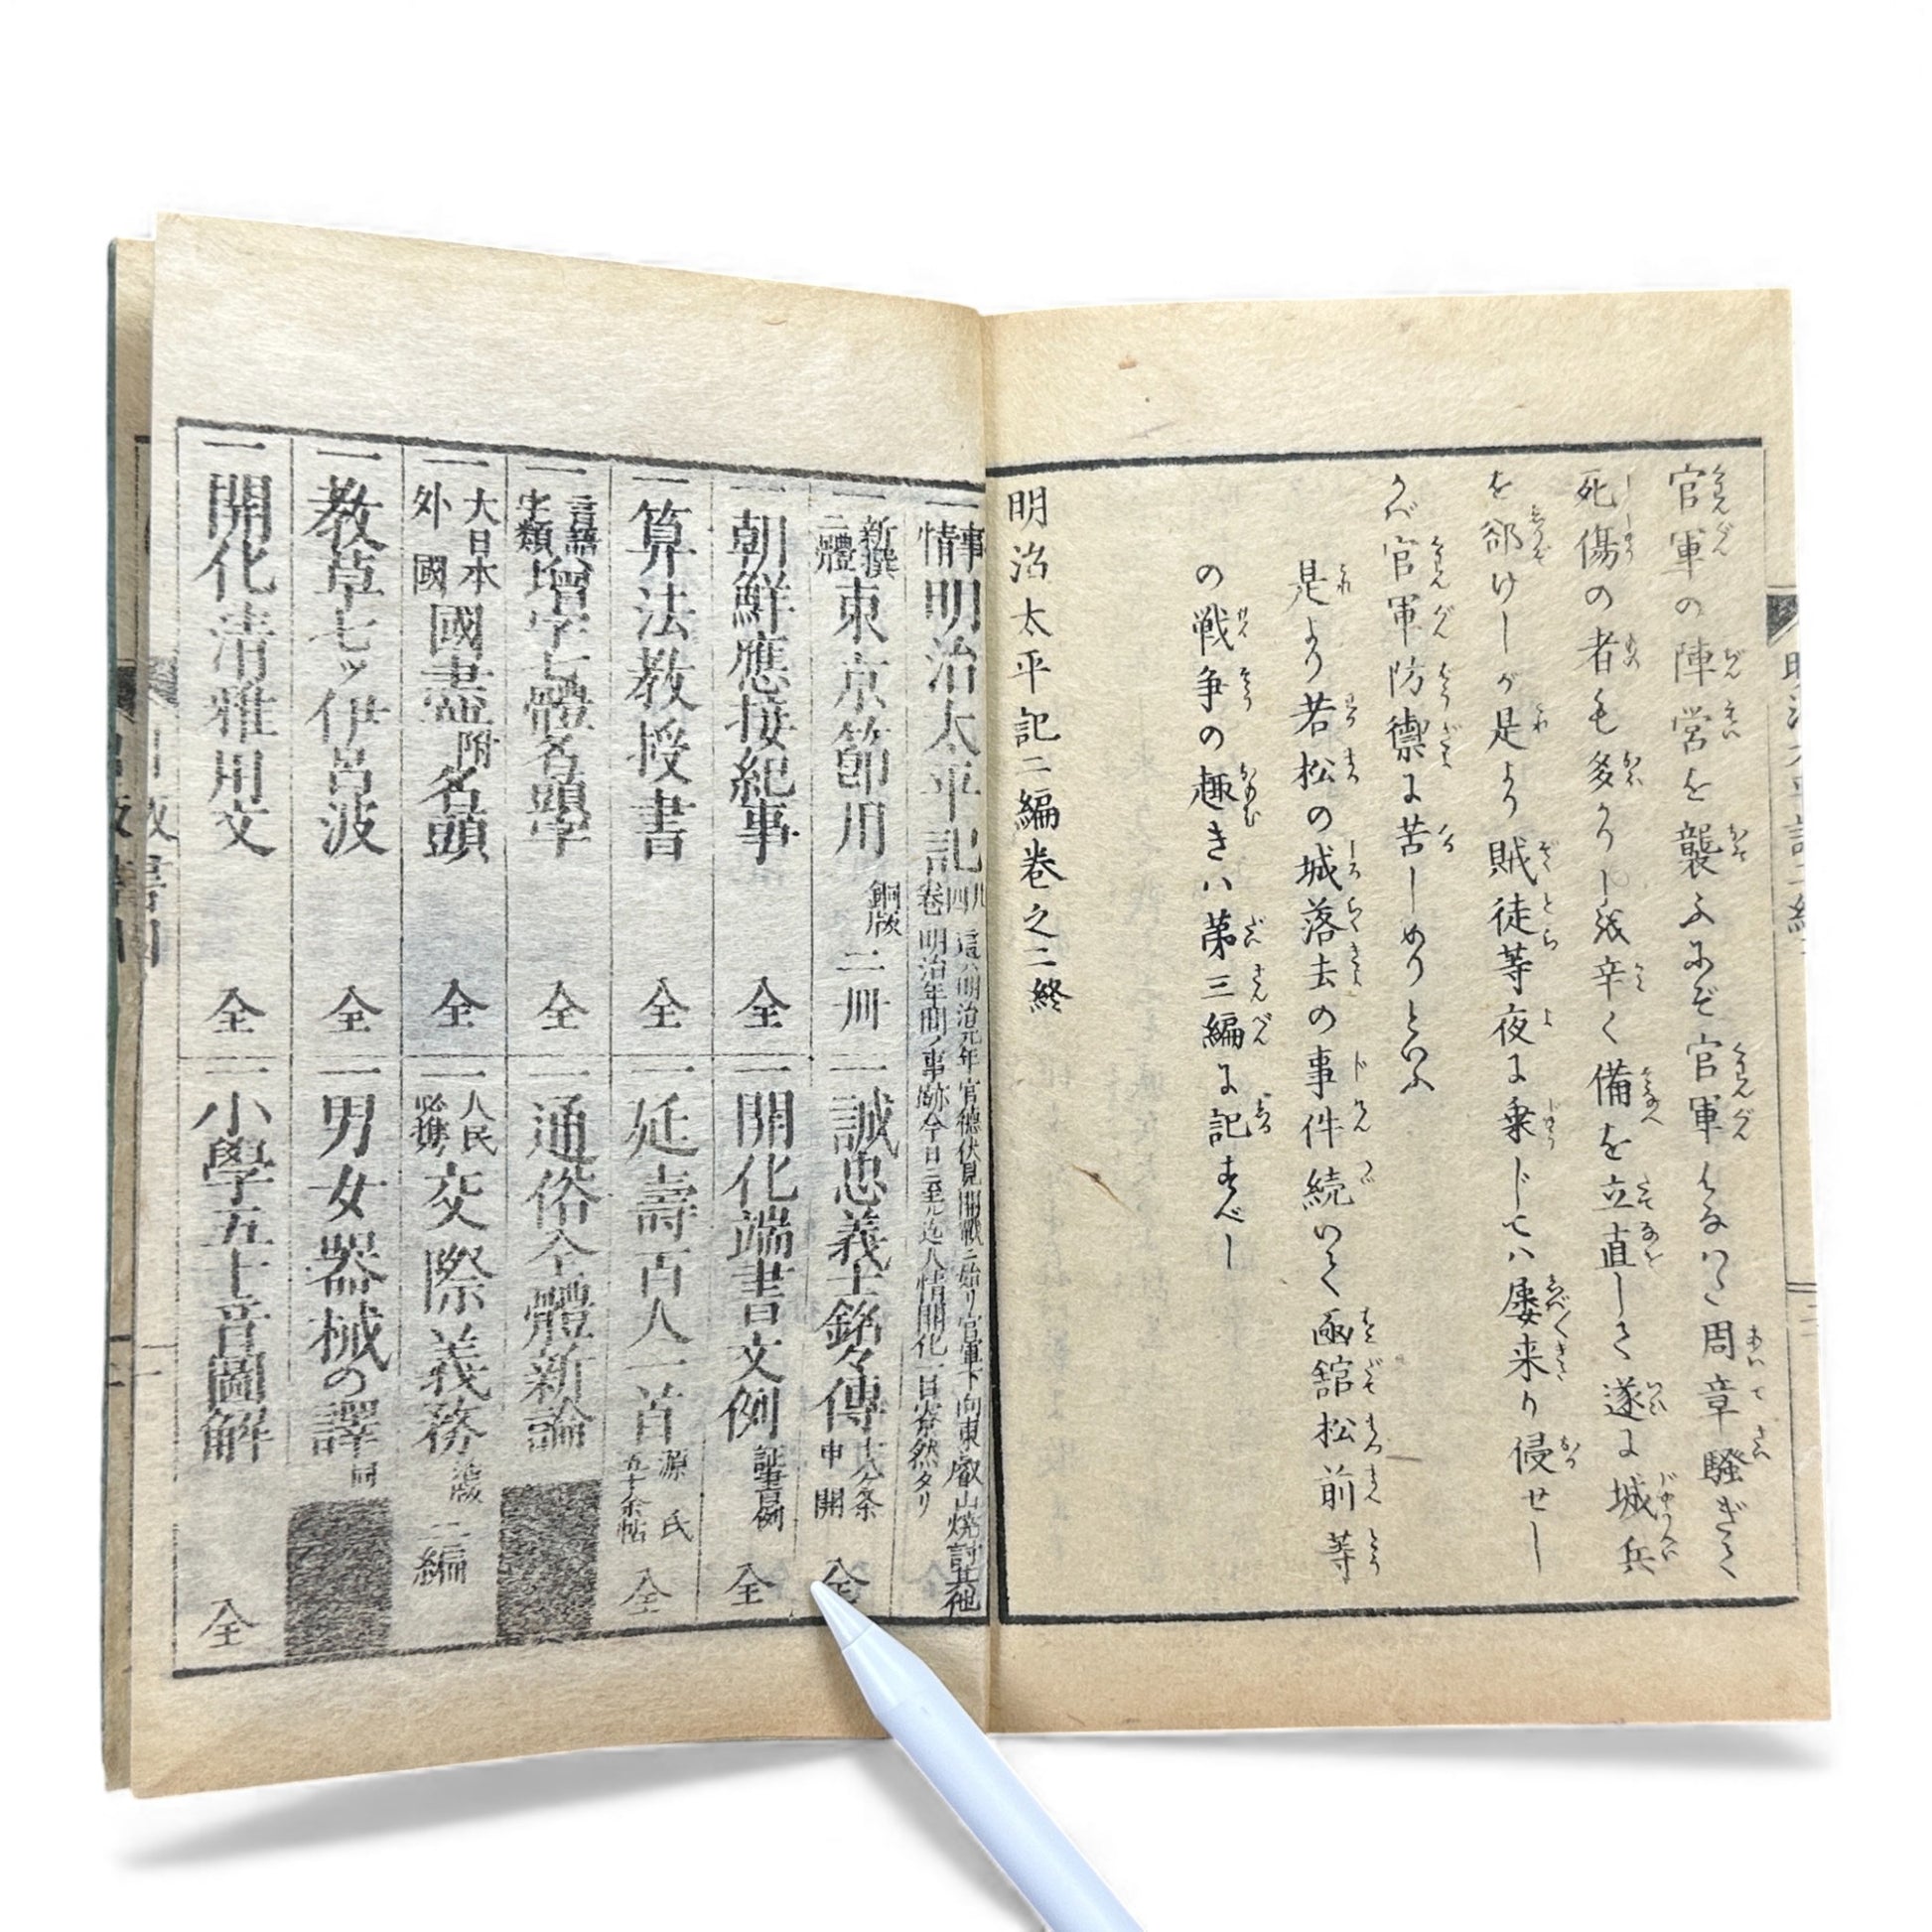 官軍の陣営を襲ふにぞ官軍は
周章騒ぎて
死傷の者も多かりしが辛く備を立直しさ遂に城兵
を郤けしが是より賊徒等夜に乗じてハ屡来り侵せし
かバ官軍防禦に苦しめりといふ
是より若松の城落去の事件続いて函舘松前等
の戦争の趣きハ第三編に記すべし
明治太平記二編巻之二終
一事情明治太平記
四巻
這ハ明治元年官徳伏見開戦ニ始リ官軍下向東叡山焼討其他
明治年間ノ事跡今日ニ至ル迄人情開化一目寮然タリ
一新撰二體東京節用 銅版 二冊
一朝鮮應接紀事 全
一算法教授書 全
一言語字類増字七體名頭學 全
一大日本外國國盡附名頭 全
一教草七ッ伊呂波 全
一開化清雅用文 全
一誠忠義士銘々傳 全
一開化端書文例 証書例 全
一延壽百人一首 源氏五十余帖 全
一通俗全體新論
一人民必携交際義務 二編
一男女器械の譯 同
一小學五十音圖解 全